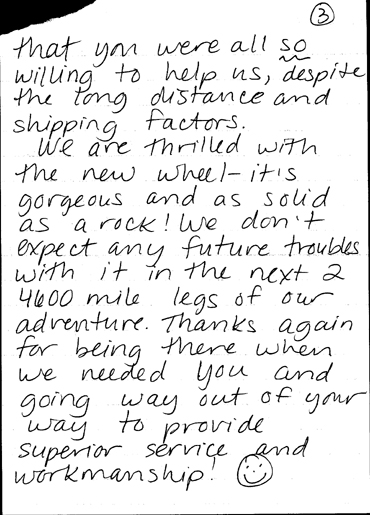 3
that you were all so
willing to help us, despite
the long distance and
shipping factors.
We are thrilled with
the new wheel - it's
gorgeous and as solid
as a rock! We don't
expect any future troubles
with it in the next 2
4600 mile legs of our
adventure. Thanks again
for being there when
we needed you and
going way out of your
way to provide
superior service and
workmanship!